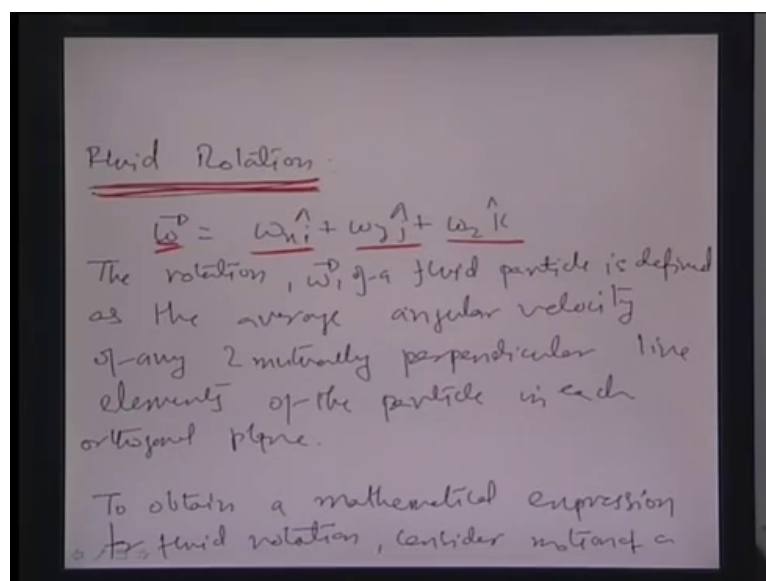 Fluid Rotation:
ω⃗ = ωₓ î + ω_y ĵ + ω_z k̂
The rotation, ω⃗, of a fluid particle is defined
as the average angular velocity
of any 2 mutually perpendicular line
elements of the particle in each
orthogonal plane.
To obtain a mathematical expression
for fluid rotation, consider motion of a